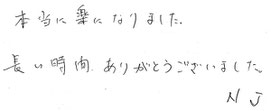 本当に楽になりました。
長い時間、ありがとうございました。
N J